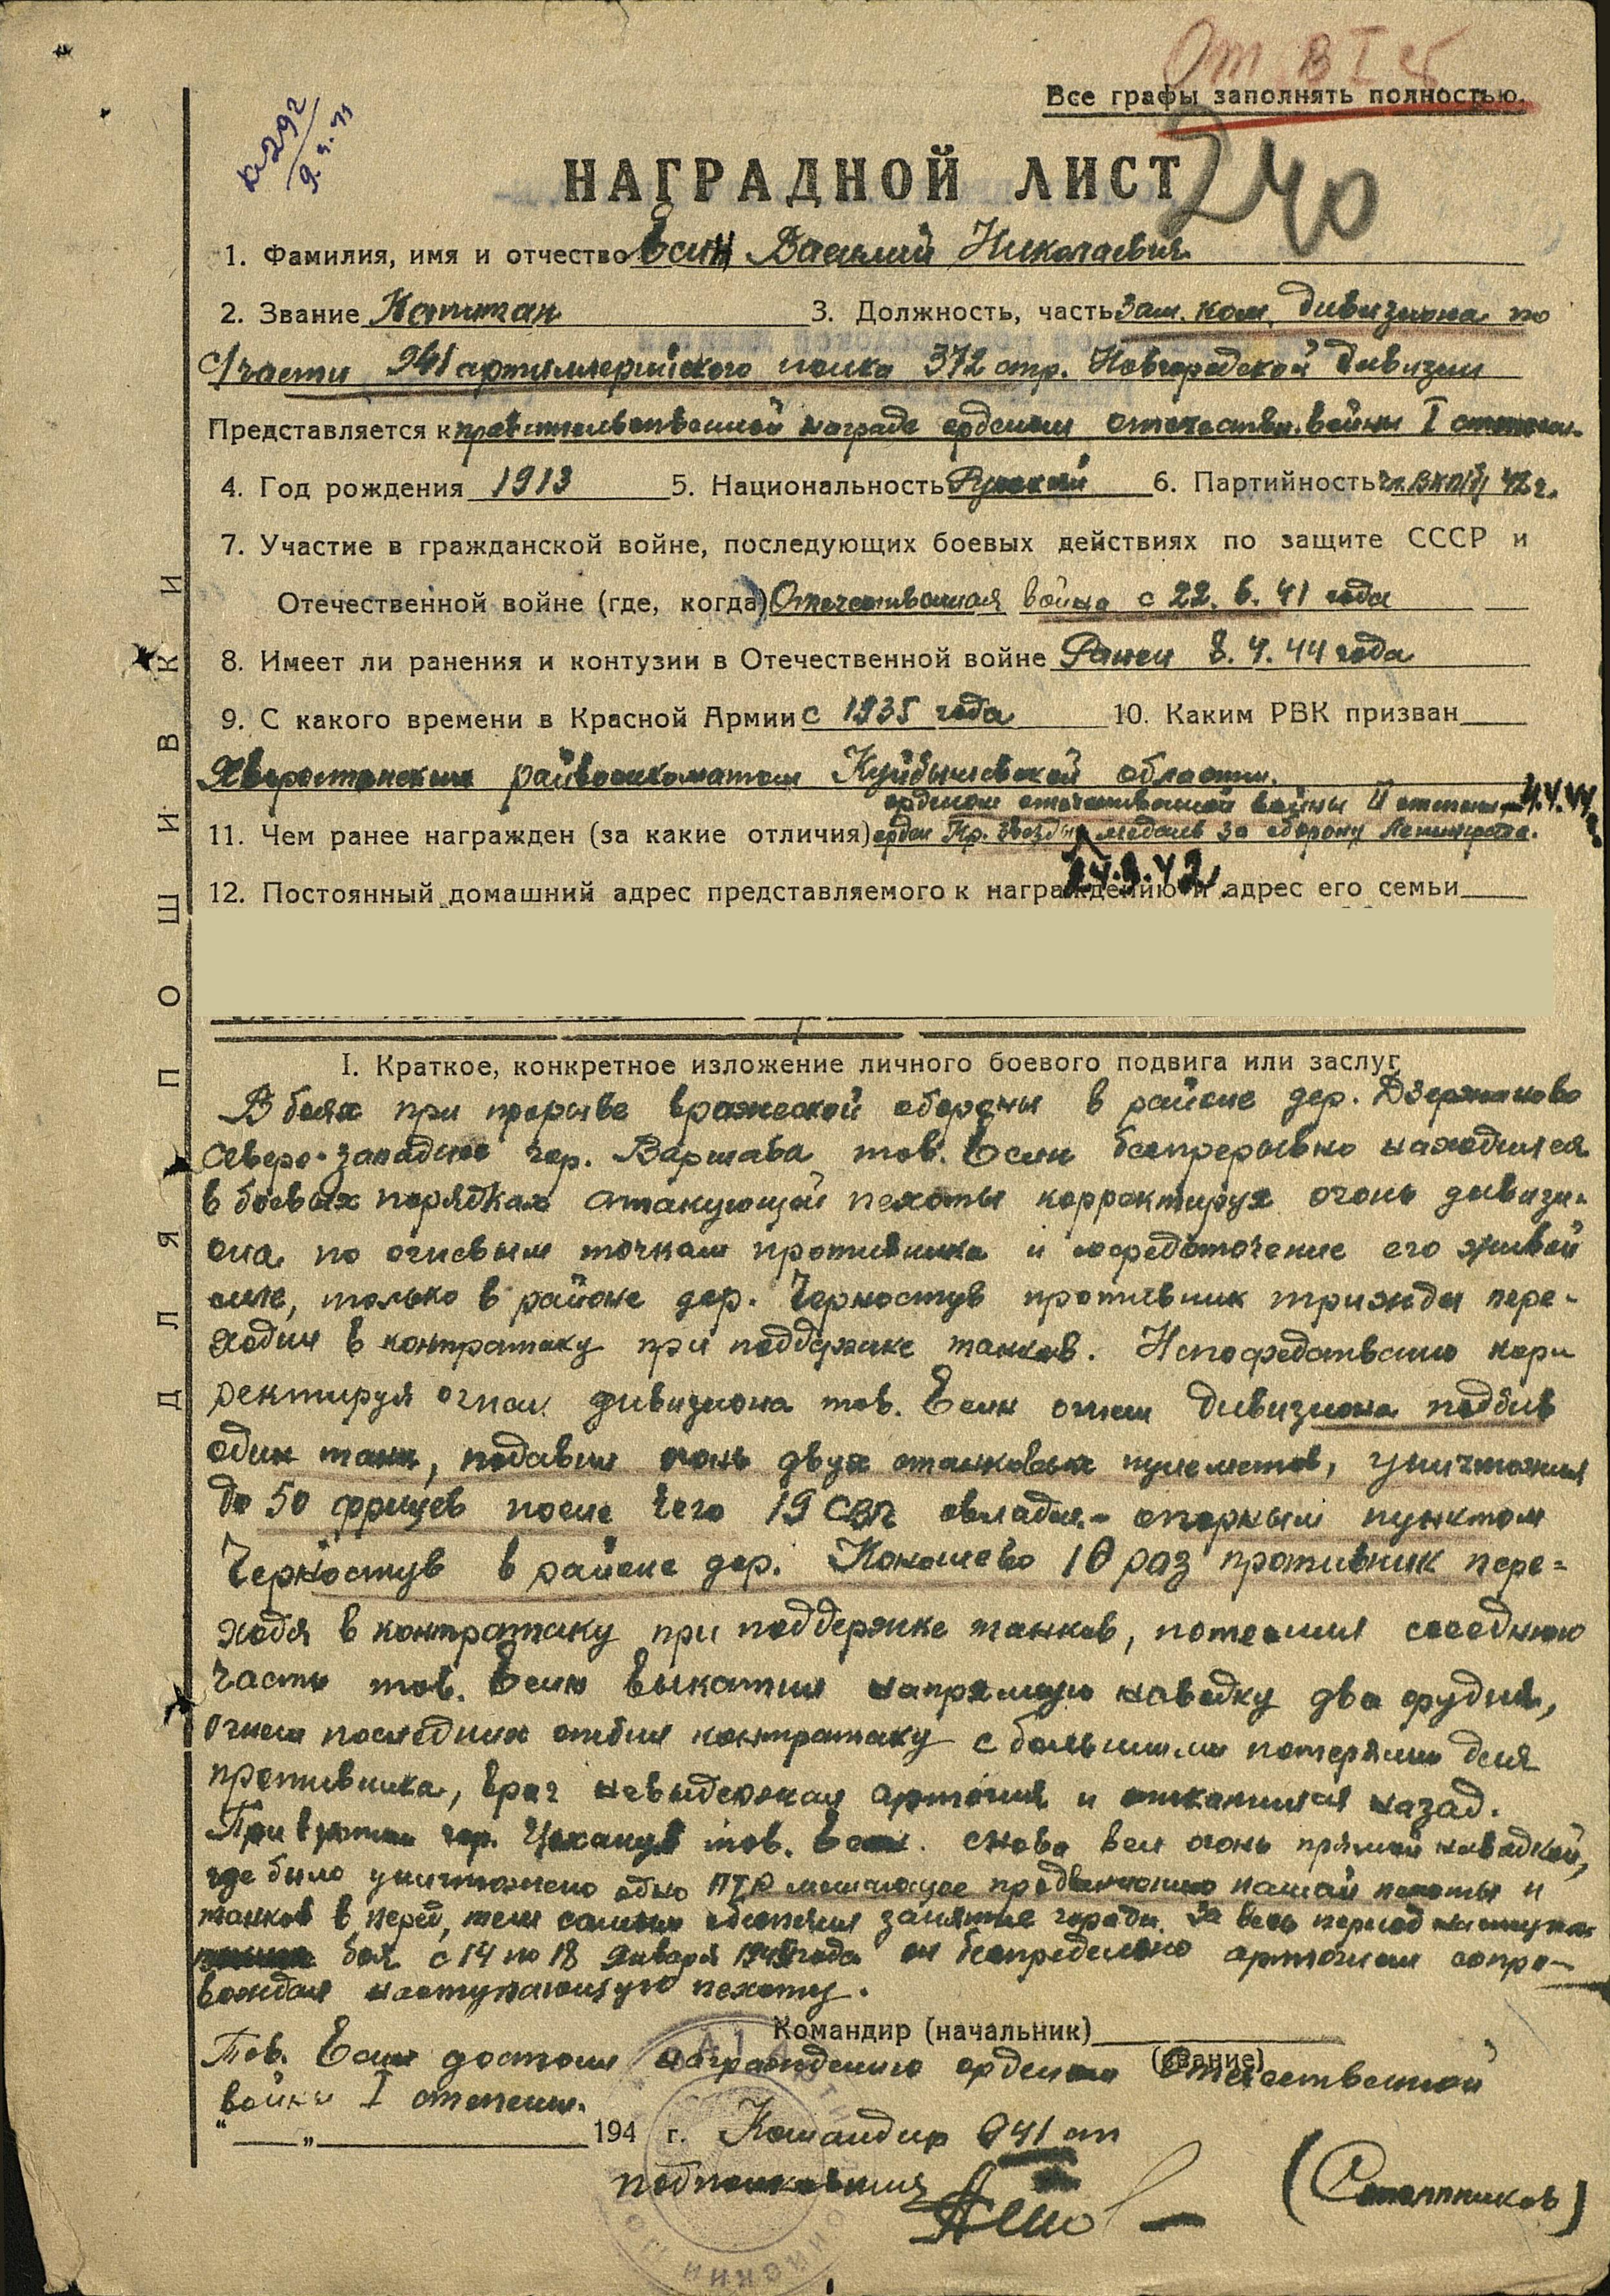 От. В I ст
Все графы заполнять полностью.
240
НАГРАДНОЙ ЛИСТ
1. Фамилия, имя и отчество Есин Василий Николаевич
2. Звание Капитан 3. Должность, часть Зам. ком. дивизиона по
с/части 941 артиллерийского полка 372 стр. Новгородской дивизии
Представляется к правительственной награде орденом отечествен. войны I степени.
4. Год рождения 1913 5. Национальность Русский 6. Партийность чл. ВКП(б) 42 г.
7. Участие в гражданской войне, последующих боевых действиях по защите СССР и
Отечественной войне (где, когда) Отечественная война с 22. 6. 41 года
8. Имеет ли ранения и контузии в Отечественной войне Ранен 8. 4. 44 года
9. С какого времени в Красной Армии с 1935 года 10. Каким РВК призван
райвоенкоматом Куйбышевской области.
орденом отечественной войны II степени
11. Чем ранее награжден (за какие отличия) орден Кр. Звезды, медаль за оборону Ленинграда.
12. Постоянный домашний адрес представляемого к награждению и адрес его семьи
ДЛЯ ПОШИВКИ
I. Краткое, конкретное изложение личного боевого подвига или заслуг
В боях при прорыве вражеской обороны в районе дер. Дзержаново
северо-западнее гор. Варшава тов. Есин беспрерывно находился
в боевых порядках атакующей пехоты корректируя огонь дивизи-
она по огневым точкам противника и сосредоточение его живой
силе, только в районе дер. Черностув противник трижды пере-
ходил в контратаку при поддержке танков. Непосредственно кор
ректируя огнем дивизиона тов. Есин огнем дивизиона подбив
один танк, подавил огонь двух станковых пулеметов, уничтожил
до 50 фрицев после чего 19 овладел опорным пунктом
Черностув в районе дер. Конашево 10 раз противник пере-
ходя в контратаку при поддержке танков, потеснил соседнюю
часть тов. Есин выкатил напрямую наводку два орудия,
огнем последних отбил контратаку с большими потерями для
противника, враг невыдержал артогня и откатился назад.
При взятии гор. Цеханув тов. Есин. снова вел огонь прямой наводкой,
где было уничтожено одно ПТО мешающее продвижению нашей пехоты и
танков в перед, тем самым обеспечил занятие города. За весь период наступа
боя с 14 по 18 января 1945 года он беспредельно артогнем сопро-
вождал наступающую пехоту.
Командир (начальник)
(звание)
Тов. Есин достоин награждению орденом Отечественной
войны I степени.
" " 194 г. Командир 941 ап
подполковник (Сотников)